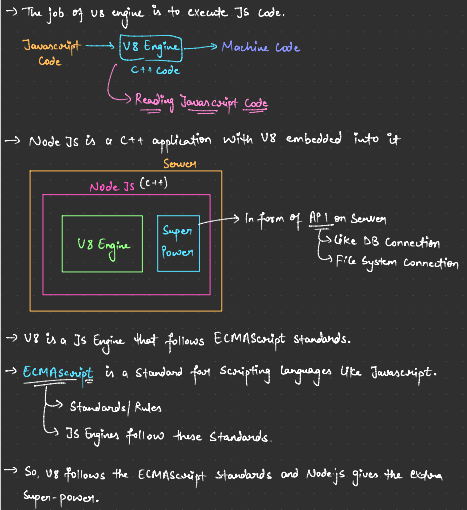 → The job of V8 engine is to execute JS code.
Javascript Code → V8 Engine → Machine Code
C++ Code
→ Reading Javascript Code
→ Node JS is a C++ application with V8 embedded into it
Server
Node JS (C++)
V8 Engine
Super Power
→ In form of API on Server
→ Like DB Connection
→ File System Connection
→ V8 is a JS Engine that follows ECMAScript standards.
→ ECMAScript is a Standard for Scripting languages like Javascript.
→ Standards/Rules
→ JS Engines follow these Standards.
→ So, V8 follows the ECMAScript standards and Nodejs gives the extra
Super-power.